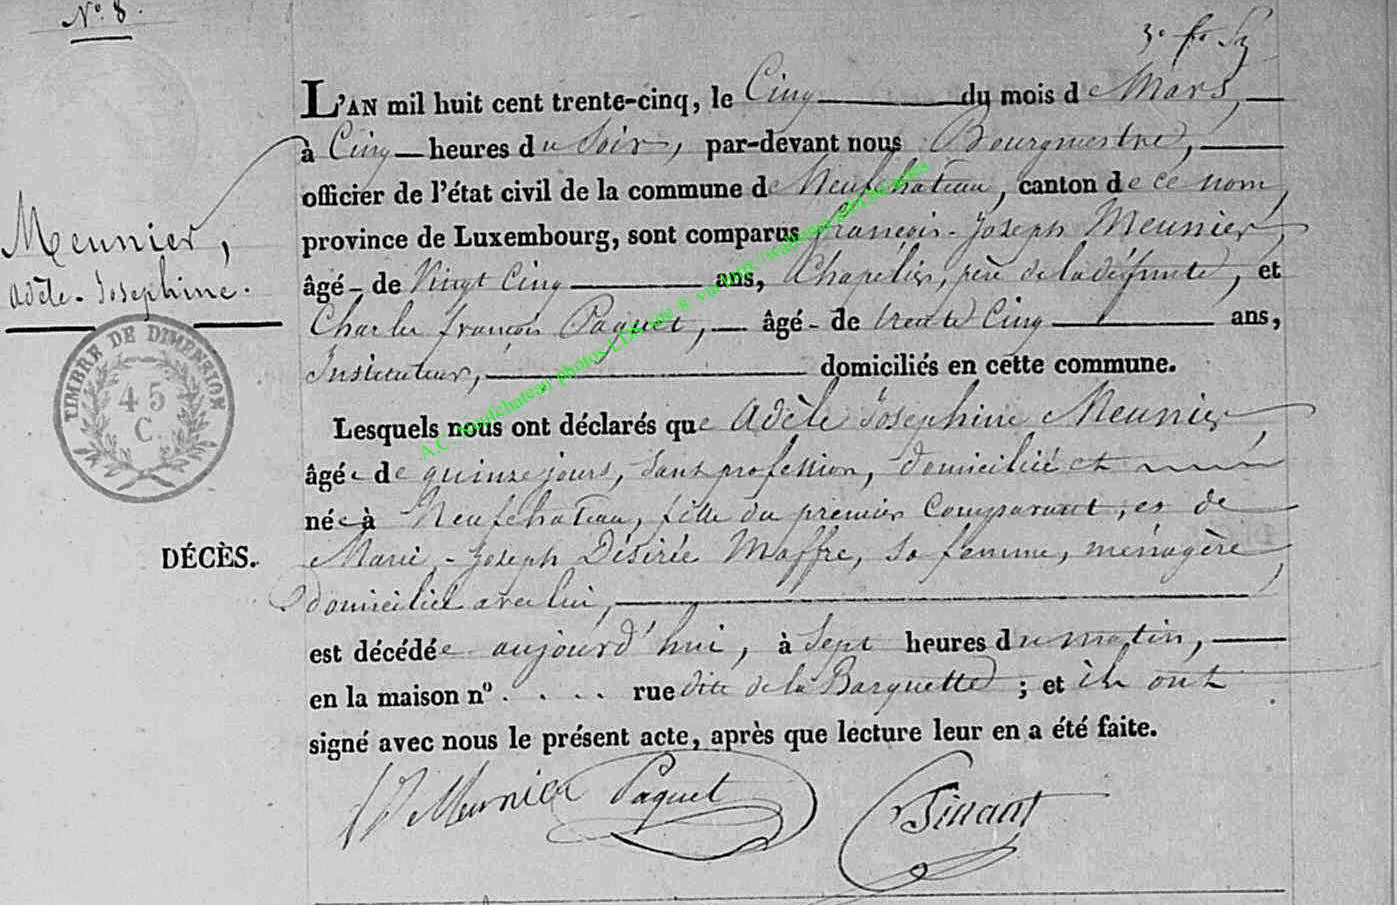 N.° 8.
L'AN mil huit cent trente-cinq, le Cinq du mois de Mars,
à Cinq heures du Soir, par-devant nous Bourgmestre,
officier de l'état civil de la commune de Neufchâteau, canton de ce nom,
province de Luxembourg, sont comparus François-Joseph Meunier,
âgé de Vingt Cinq ans, Chapelier, père de la défunte, et
Charles françois Paquet, âgé de trente Cinq ans,
Instituteur, domiciliés en cette commune.
Lesquels nous ont déclarés que Adèle Josephine Meunier,
âgée de quinze jours, sans profession, domiciliée et
née à Neufchateau, fille du premier Comparant, et de
Marie-Joseph Désirée Maffre, sa femme, ménagère
domiciliée avec lui,
est décédée aujourd'hui, à Sept heures du matin,
en la maison n° . . . . rue dite de la Barquette ; et ils ont
signé avec nous le présent acte, après que lecture leur en a été faite.
Meunier Paquet Sinant
Meunier,
Adèle-Josephine.
TIMBRE DE DIMENSION
45
C.
DÉCÈS.
A.C. Neufchateau photos LDS site ® via http://wallonia-asbl.be/actes